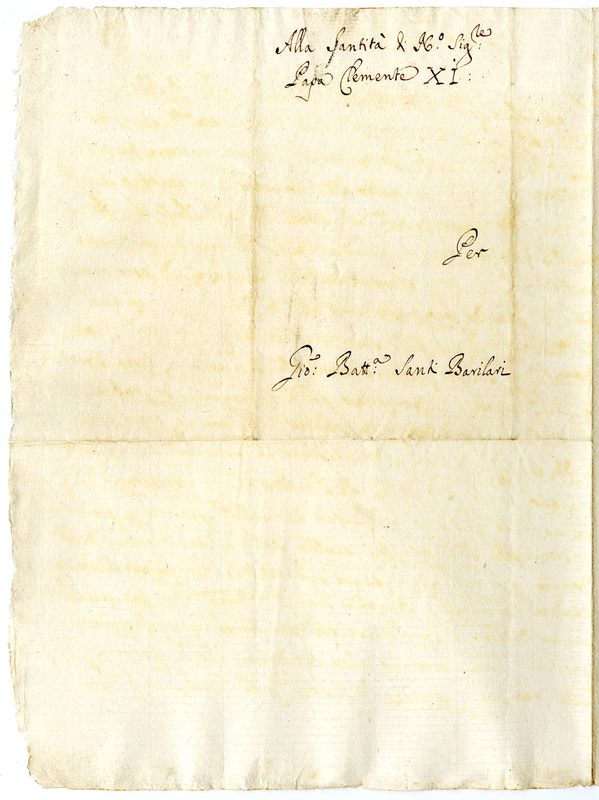 Alla Santità di N.º Sig.le
Papa Clemente XI:
Per
Gio: Batt.a Santi Barilari